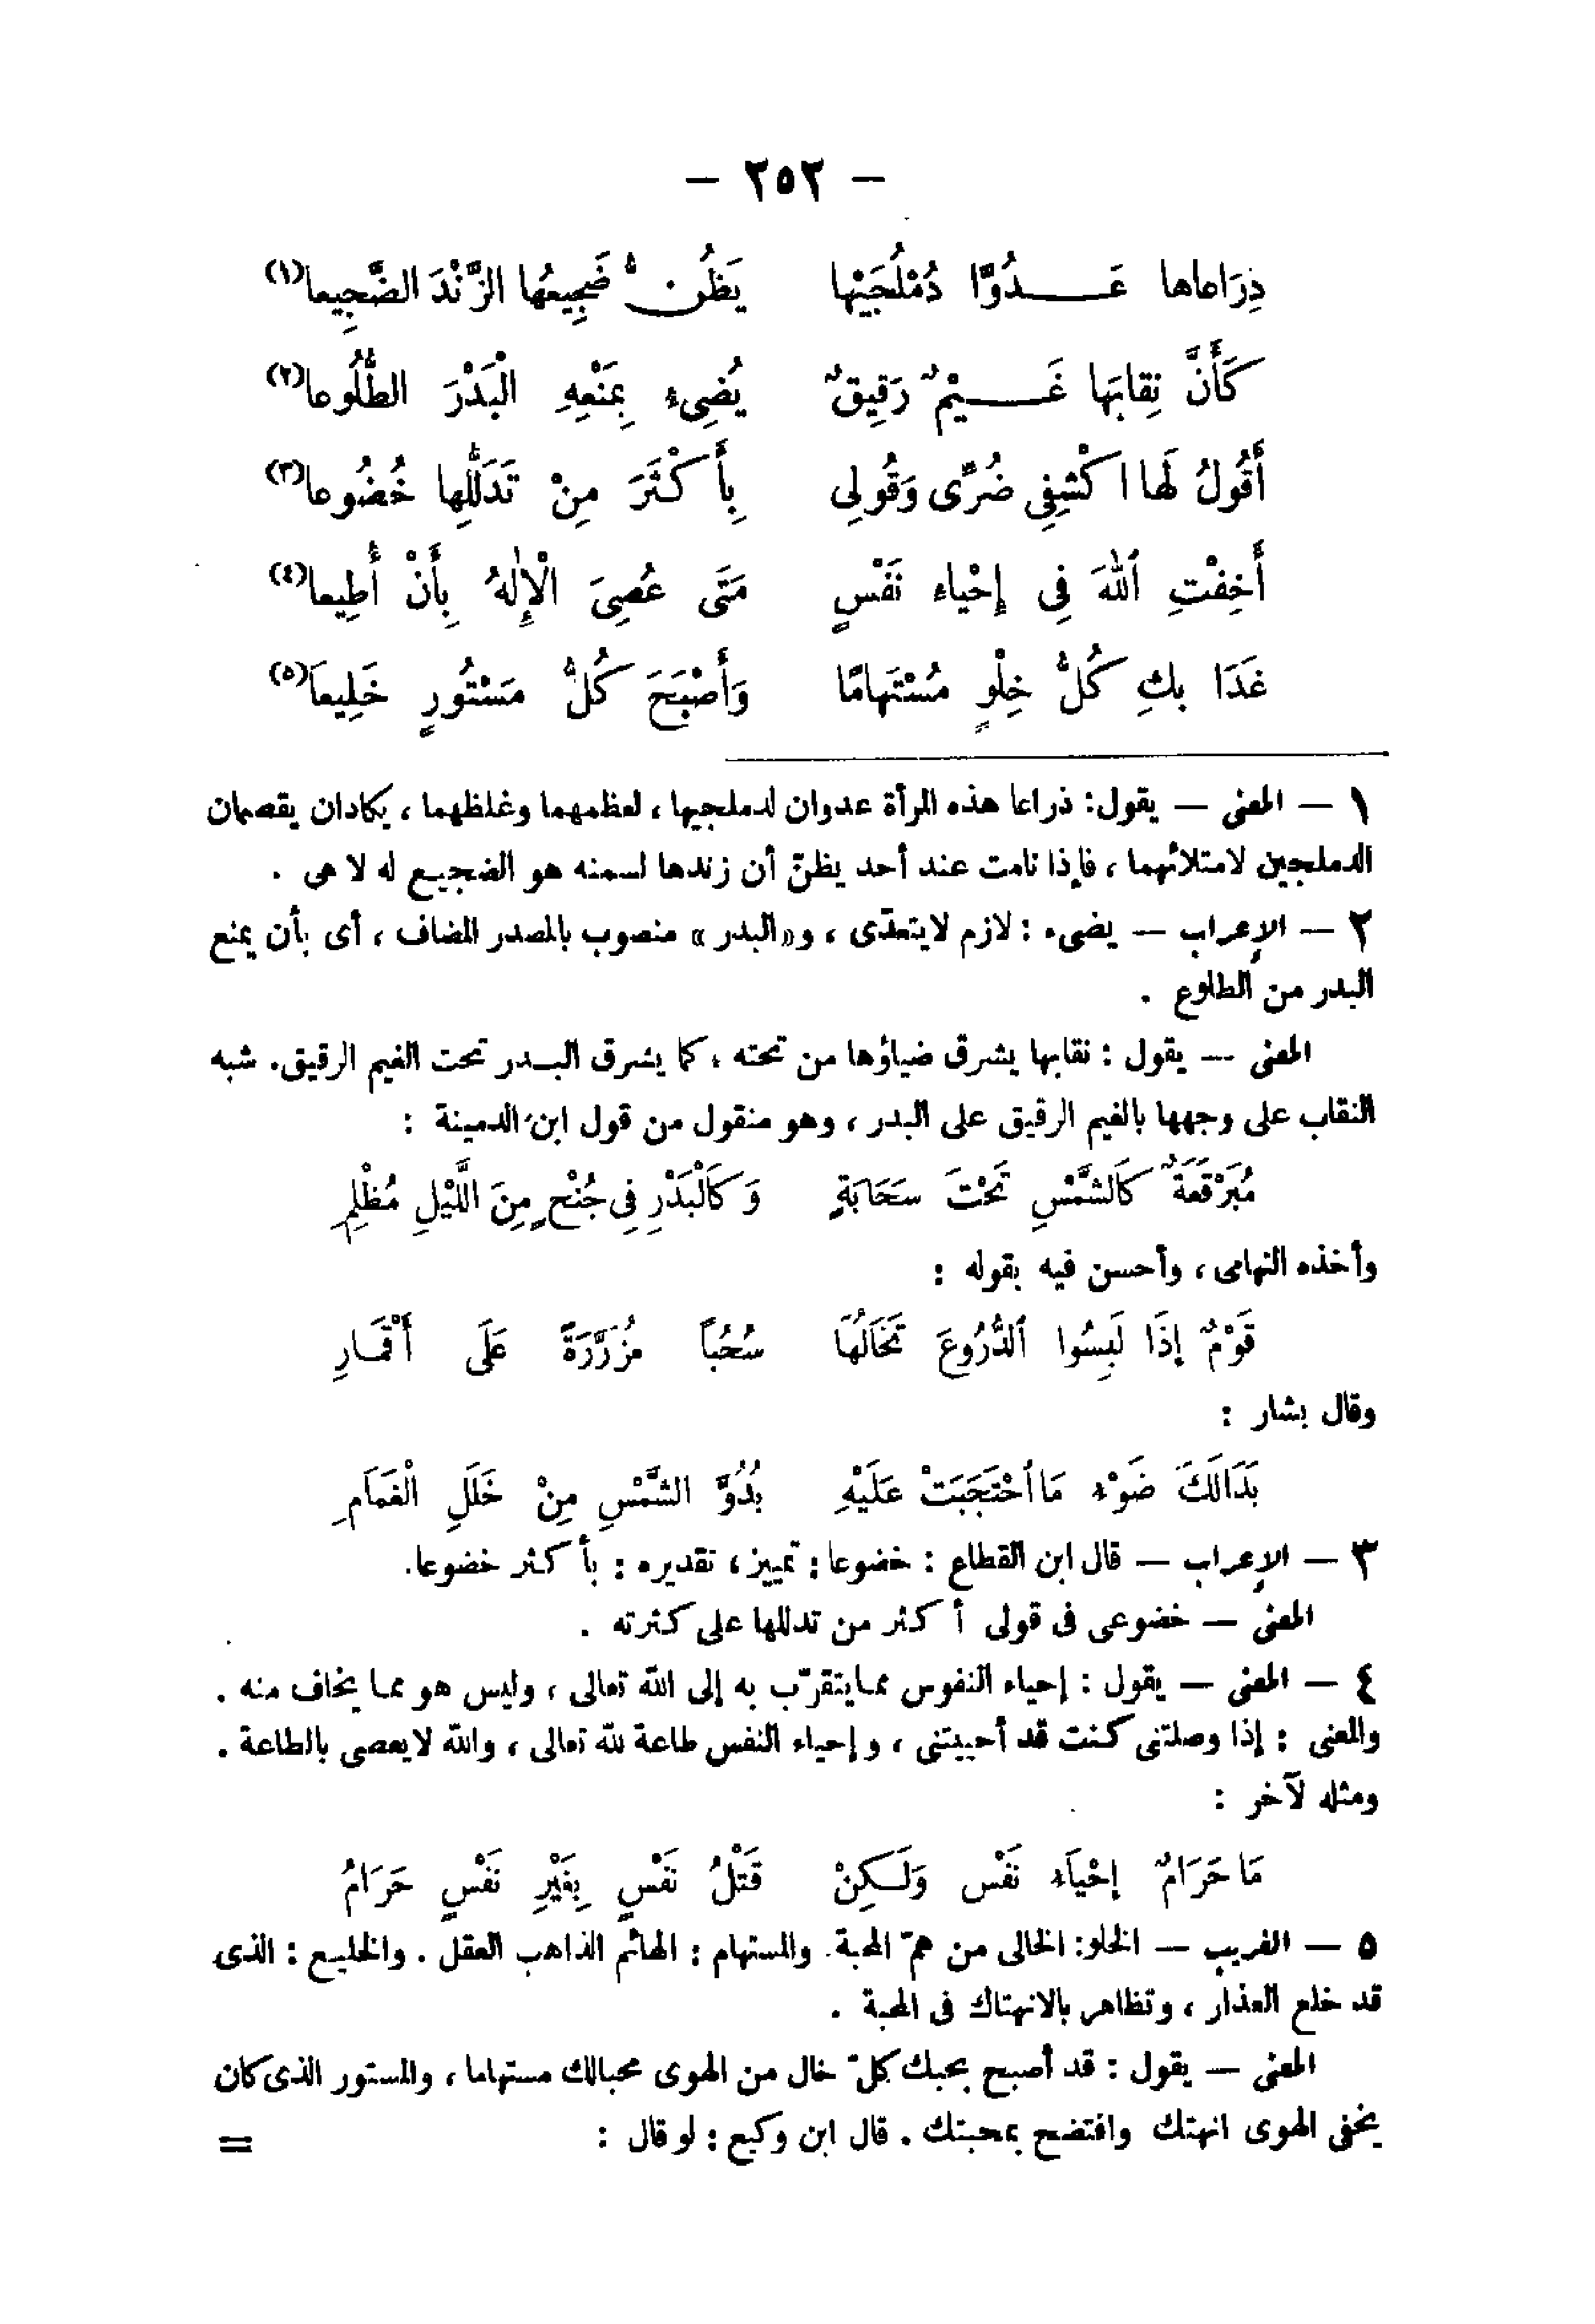 — ٢٥٢ —
ذِرَاعاها عَــــدُوَّا دُمْلُجَيْها يَظُنُّ ضَجِيعُها الزَّنْدَ الضَّجِيعا(١)
كَأَنَّ نِقابَها غَــــيْمٌ رَقِيقٌ يُضِىءُ بِمَنْعِهِ الْبَدْرَ الطُّلُوعا(٢)
أَقُولُ لَها اكْشِفِى ضُرِّى وَقُولِى بِأَكْثَرَ مِنْ تَدَلُّلِها خُضُوعا(٣)
أَخِفْتِ ٱللهَ فِى إِحْياءِ نَفْسٍ مَتَى عُصِىَ الْإِلٰهُ بِأَنْ أُطِيعا(٤)
غَدَا بكِ كُلُّ خِلْوٍ مُسْتَهامًا وَأَصْبَحَ كُلُّ مَسْتُورٍ خَلِيعاَ(٥)
١ — المعنى — يقول: ذراعا هذه المرأة عدوان لدملجيها ، لعظمهما وغلظهما ، يكادان يقصمان
الدملجين لامتلائهما ، فإذا نامت عند أحد يظنّ أن زندها لسمنه هو الضجيع له لا هى .
٢ — الإعراب — يضىء : لازم لايتعدّى ، و«البدر» منصوب بالمصدر المضاف ، أى بأن يمنع
البدر من الطلوع .
المعنى — يقول : نقابها يشرق ضياؤها من تحته ، كما يشرق البـدر تحت الغيم الرقيق. شبه
النقاب على وجهها بالغيم الرقيق على البدر ، وهو منقول من قول ابن الدمينة :
مُبَرْقَعَةٌ كَالشَّمْسِ تَحْتَ سَحَابَةٍ وَكَالْبَدْرِ فِى جُنْحٍ مِنَ اللَّيْلِ مُظْلِمِ
وأخذه التهامى ، وأحسن فيه بقوله :
قَوْمٌ إِذَا لَبِسُوا ٱلدُّرُوعَ تَخَالُهَا سُحُباً مُزَرَّرَةً عَلَى أَقْمَـارِ
وقال بشار :
بَدَالَكَ ضَوْءِ مَا ٱحْتَجَبَتْ عَلَيْهِ بُدُوَّ الشَّمْسِ مِنْ خَلَلِ الْغَمَامِ
٣ — الإعراب — قال ابن القطاع : خضوعا : تمييز ، تقديره : بأكثر خضوعا.
المعنى — خضوعى فى قولى أكثر من تدللها على كثرته .
٤ — المعنى — يقول : إحياء النفوس ممـايتقرّب به إلى الله تعالى ، وليس هو ممـا يخاف منه .
والمعنى : إذا وصلتنى كنت قد أحييتنى ، وإحياء النفس طاعة لله تعالى ، والله لايعصى بالطاعة .
ومثله لآخر :
مَا حَرَامٌ إِحْيَاَءِ نَفْس وَلَـكِنْ قَتْلُ نَفْسٍ بِغَيْرِ نَفْسٍ حَرَامُ
٥ — الغريب — الخلو: الخالى من همّ المحبة. والمستهام : الهائم الذاهب العقل . والخليـع : الذى
قد خلع العذار ، وتظاهر بالانهتاك فى المحبة .
المعنى — يقول : قد أصبح بحبك كلّ خال من الهوى محبالك مستهاما ، والمستور الذى كان
يخفى الهوى انهتك وافتضح بمحبتك . قال ابن وكيع : لو قال : =